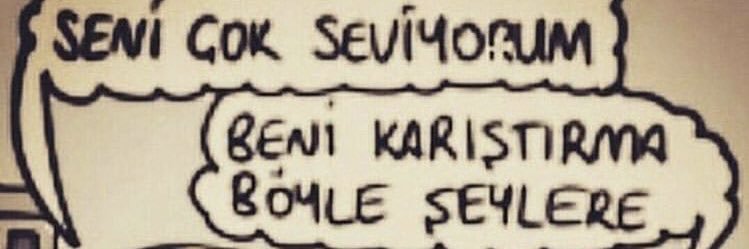 SENİ ÇOK SEVİYORUM
BENİ KARIŞTIRMA
BÖYLE ŞEYLERE